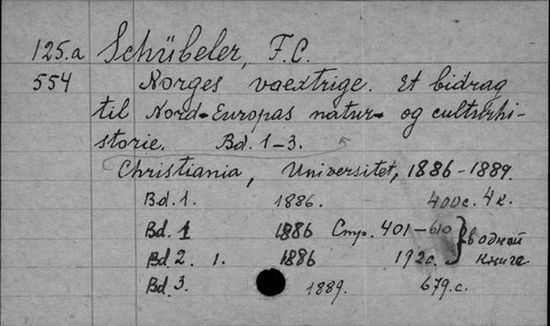 125.a Schübeler, F.C.
554 Norges vaextrige. Et bidrag
til Nord-Europas natur- og culturhi-
storie. Bd. 1-3.
Christiania, Universitet, 1886-1889.
Bd. 1. 1886. 400c. 4e.
Bd. 1 1886 Стр. 401-610 } в одной
Bd. 2. 1. 1886 192c. книге.
Bd. 3. 1889. 679.c.